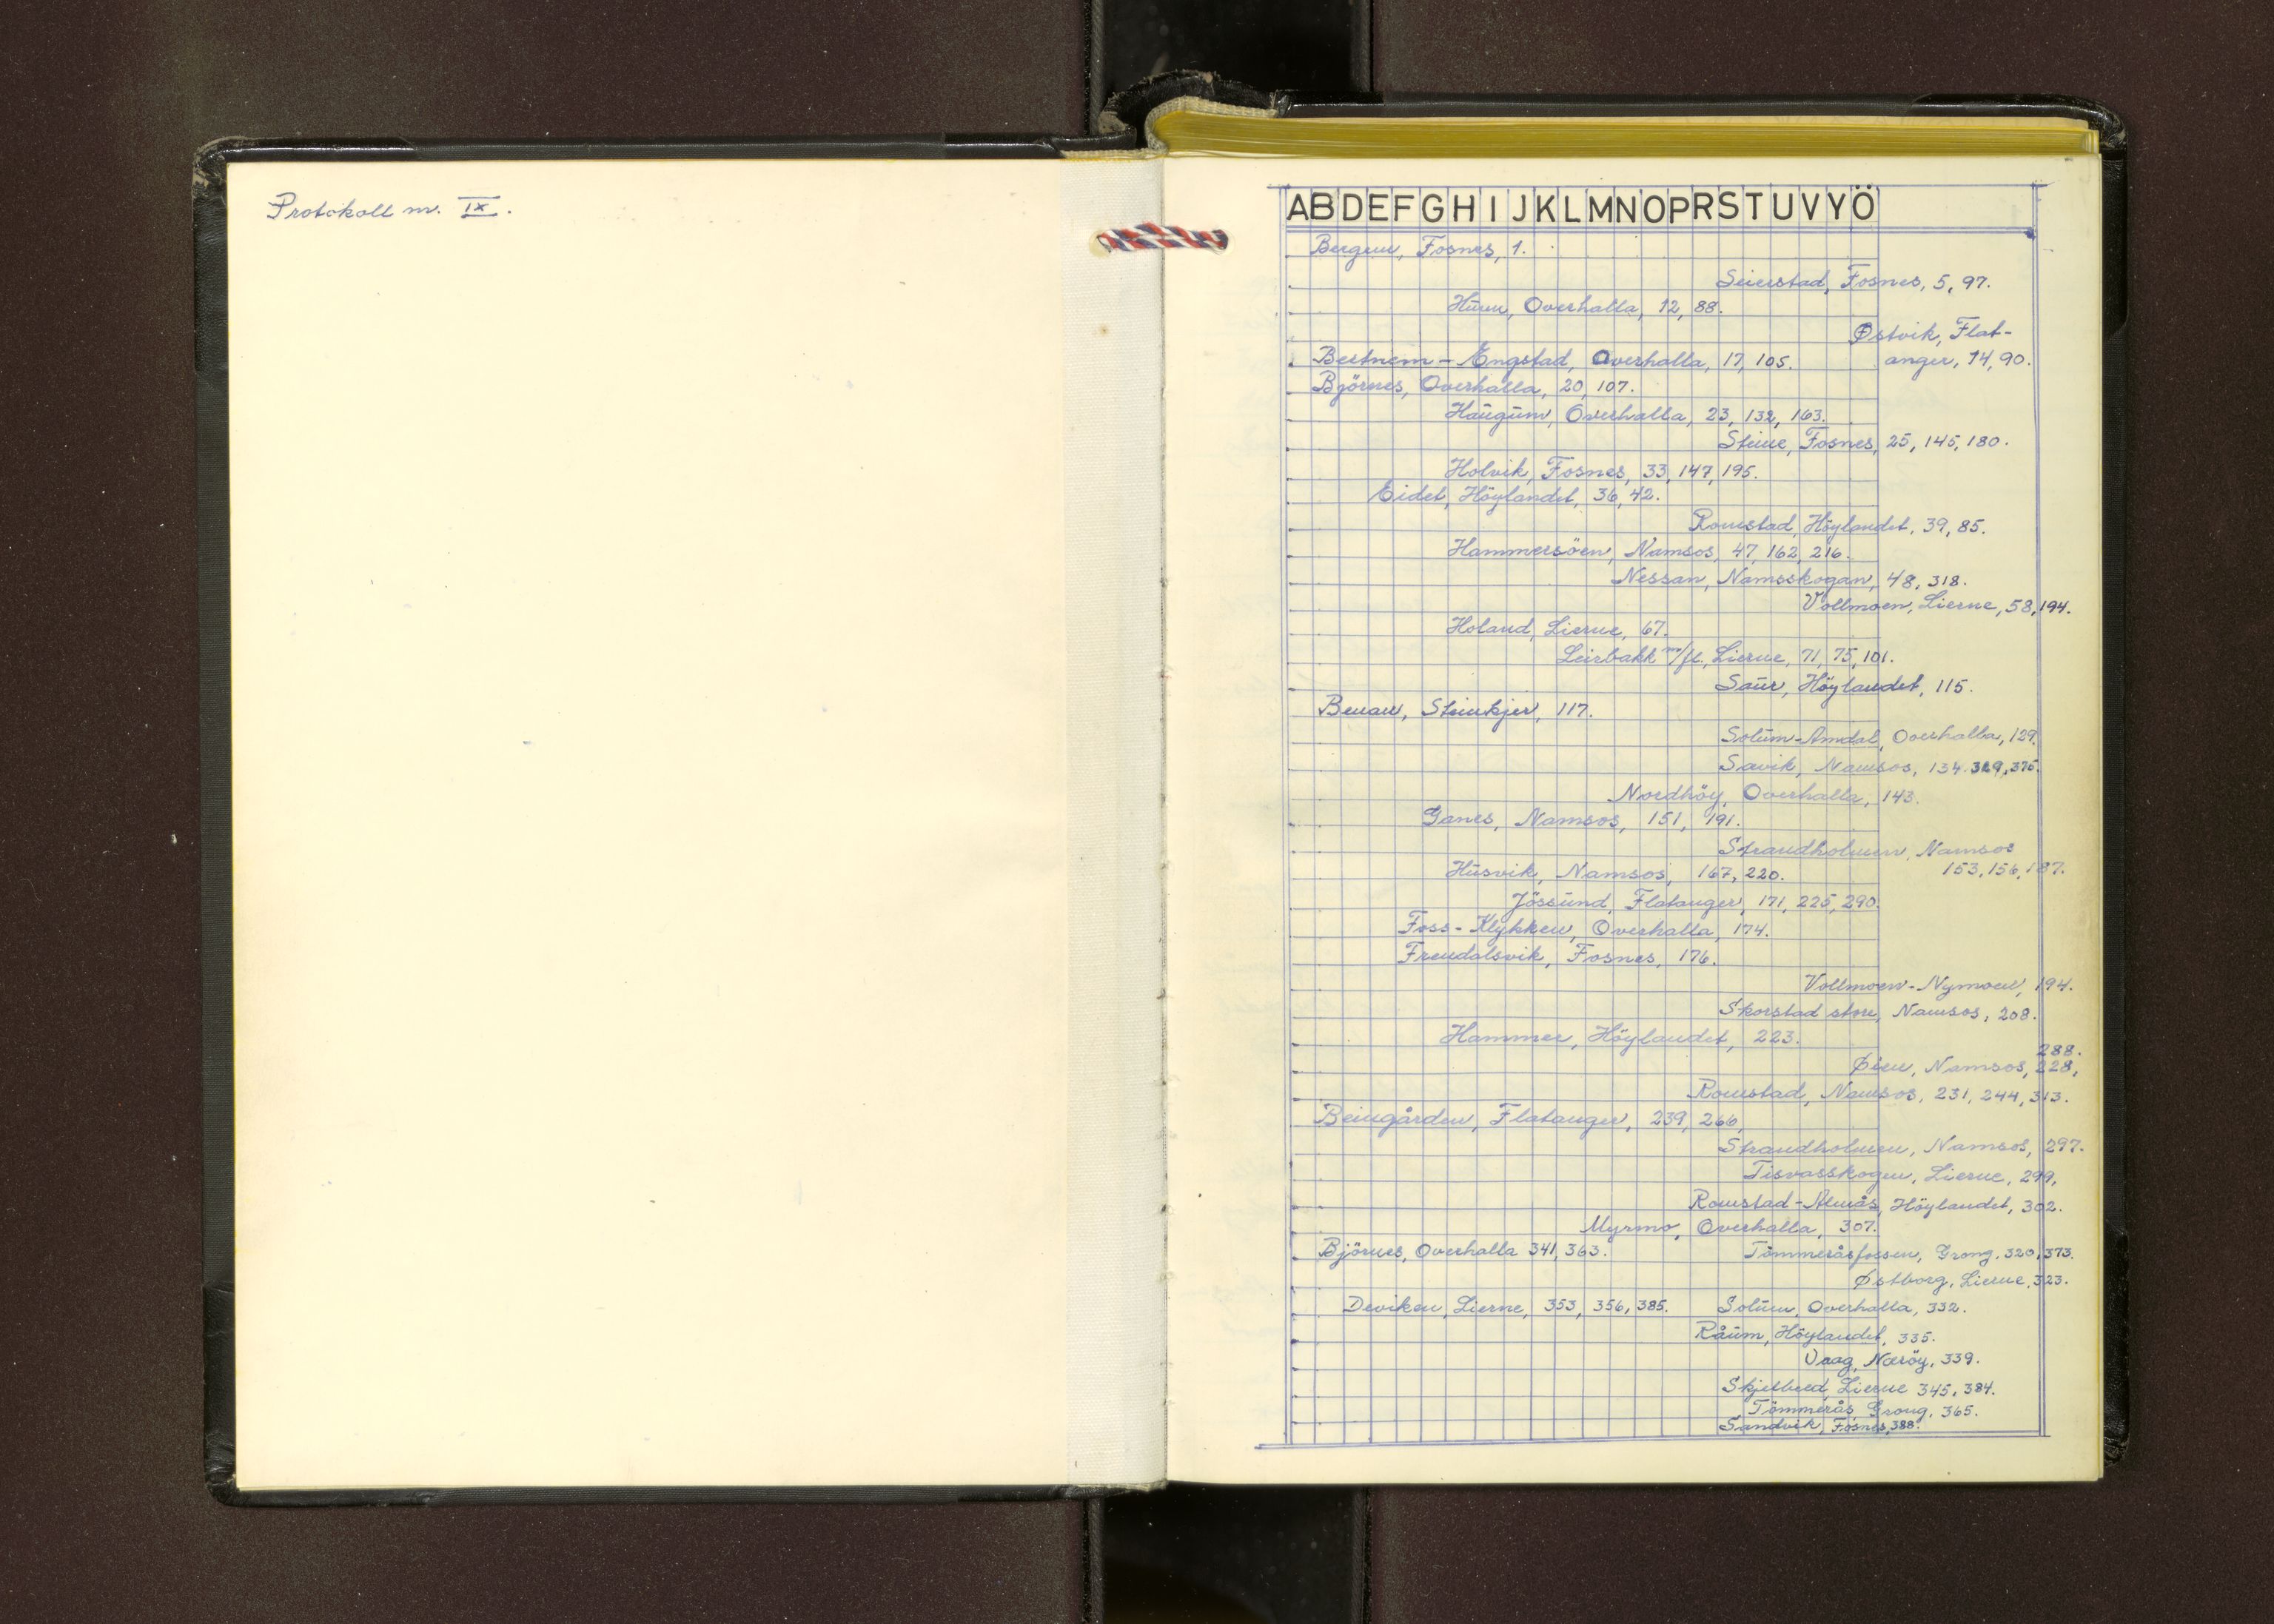 Protokoll nr. IX.
ABDEFGHIJKLMNOPRSTUVYÖ
Bergem, Fosnes, 1.
Seierstad, Fosnes, 5, 97.
Hunn, Overhalla, 12, 88.
Østvik, Flat-
anger, 14, 90.
Bertnem - Engstad, Overhalla, 17, 105.
Björnes, Overhalla, 20, 107.
Haugum, Overhalla, 23, 132, 163.
Steine, Fosnes, 25, 145, 180.
Holvik, Fosnes, 33, 147, 195.
Eidet, Höylandet, 36, 42.
Romstad, Höylandet, 39, 85.
Hammersöen, Namsos, 47, 162, 216.
Nessan, Namsskogan, 48, 318.
Vollmoen, Lierne, 58, 194.
Holand, Lierne, 67.
Leirbakk m/fl., Lierne, 71, 75, 101.
Saur, Höylandet, 115.
Benan, Steinkjer, 117.
Solum-Amdal, Overhalla, 129.
Savik, Namsos, 134. 329, 375.
Nordhöy, Overhalla, 143.
Ganes, Namsos, 151, 191.
Strandholmen, Namsos
153, 156, 187.
Husvik, Namsos, 167, 220.
Jössund, Flatanger, 171, 225, 290.
Foss - Klykken, Overhalla, 174.
Frendalsvik, Fosnes, 176.
Vollmoen - Nymoen, 194.
Skorstad store, Namsos, 208.
Hammer, Höylandet, 223.
288.
Øien, Namsos, 228,
Romstad, Namsos, 231, 244, 313.
Beingården, Flatanger, 239, 266,
Strandholmen, Namsos, 297.
Tisvasskogen, Lierne, 299.
Romstad - Almås, Höylandet, 302.
Myrmo, Overhalla, 307.
Björnes, Overhalla 341, 363.
Tömmeråsfossen, Grong, 320, 373.
Østborg, Lierne, 323.
Deviken, Lierne, 353, 356, 385.
Solum, Overhalla, 332.
Råum, Höylandet, 335.
Vaag, Næröy, 339.
Skjelbred, Lierne 345, 384.
Tömmerås, Grong, 365.
Sandvik, Fosnes, 388.